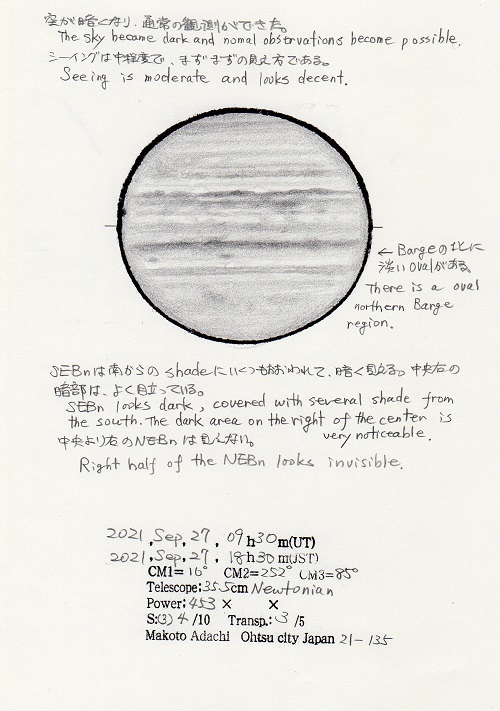 空が暗くなり、通常の観測ができた。
The sky became dark and nomal observations become possible.
シーイングは中程度で、まずまずの見え方である。
Seeing is moderate and looks decent.
← Bargeの北に
淡いovalがある。
There is a oval
northern Barge
region.
SEBnは南からのshadeにいくつもおおわれて、暗く見える。中央右の
暗部は、よく目立っている。
SEBn looks dark, covered with several shade from
the south. The dark area on the right of the center is
very noticeable.
中央より右のNEBnは見えない。
Right half of the NEBn looks invisible.
2021, Sep, 27, 09h30m(UT)
2021, Sep, 27, 18h30m(JST)
CM1=16° CM2=252° CM3=85°
Telescope:35.5cm Newtonian
Power:453× ×
S:(3) 4/10 Transp.:3/5
Makoto Adachi Ohtsu city Japan 21-135